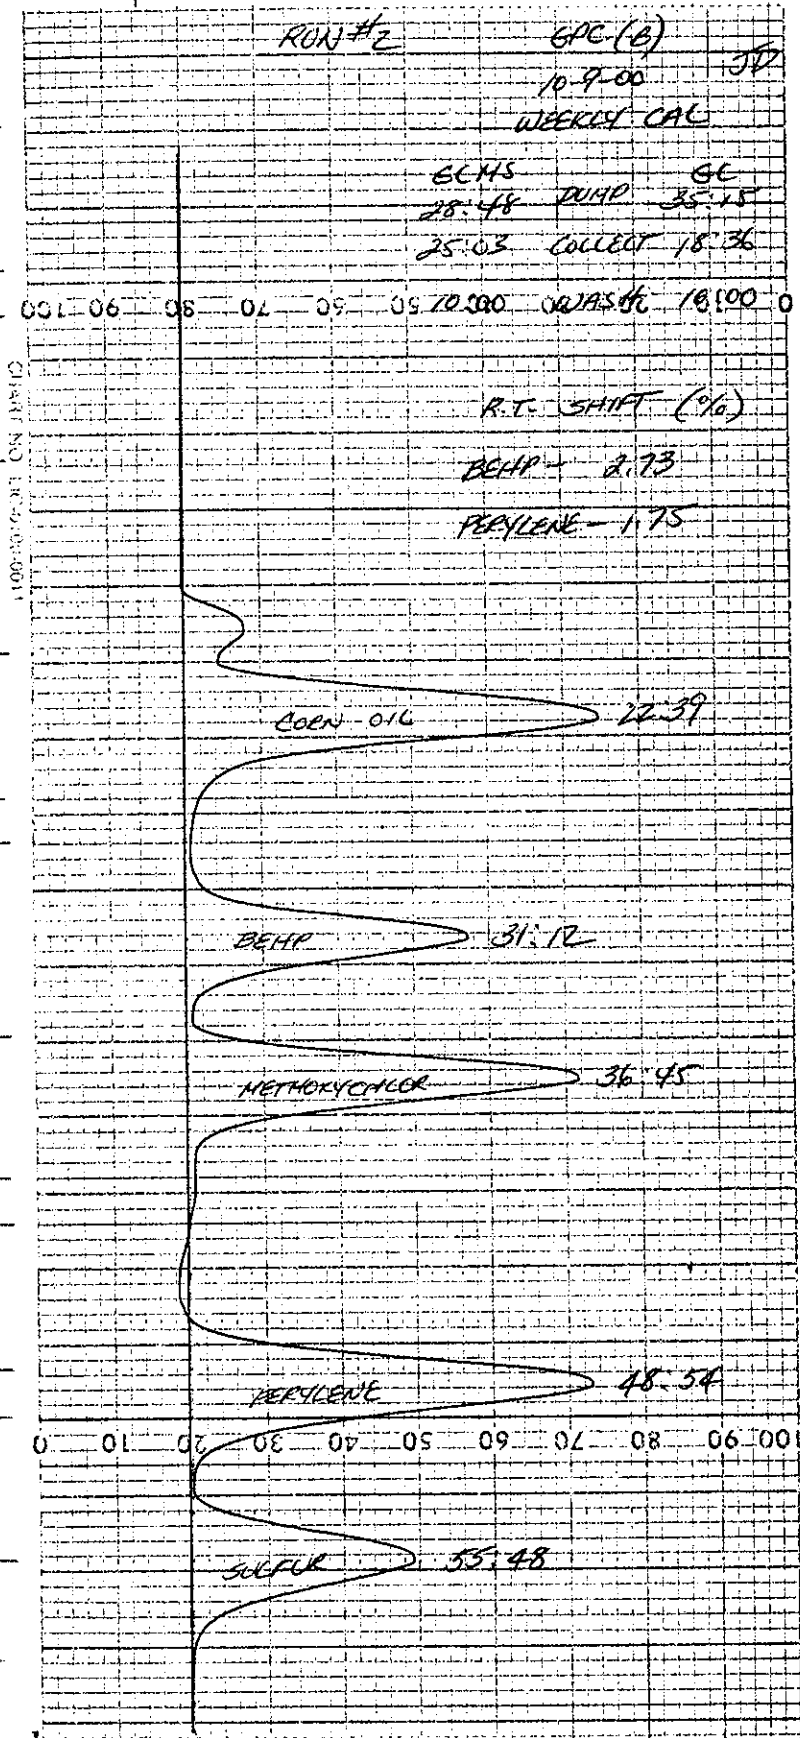 RUN #2 GPC (B) JD
10-9-00
WEEKLY CAL
GCMS GC
28:48 DUMP 35:15
25:03 COLLECT 18:36
10:00 WASH 10:00
100 90 80 70 60 50 0
R.T. SHIFT (%)
BEHP - 2.73
PERYLENE - 1.75
CORN OIL 22:39
BEHP 31:12
METHOXYCHLOR 36:45
PERYLENE 48:54
0 10 20 30 40 50 60 70 80 90 100
SULFUR 55:48